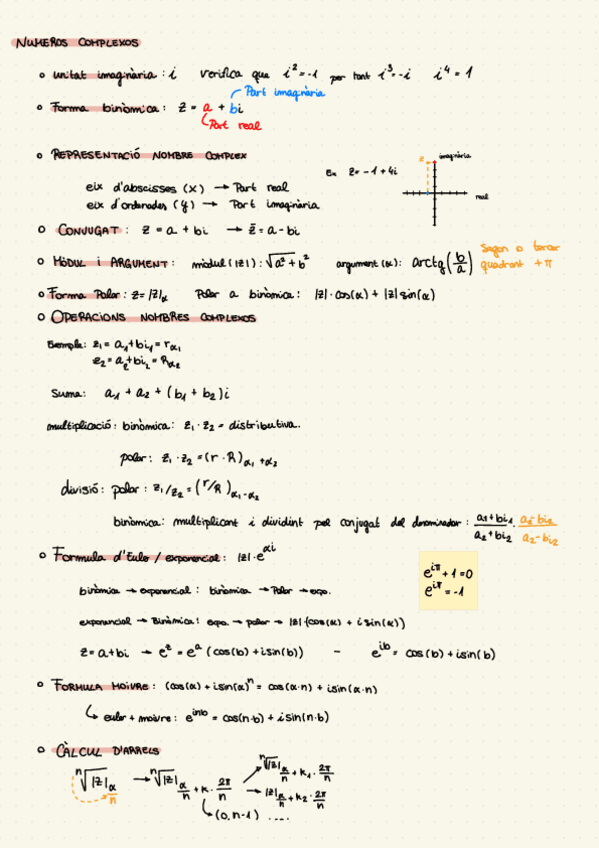 NUMEROS COMPLEXOS
unitat imaginària : i verifica que i² = -1 per tant i³ = -i i⁴ = 1
Part imaginària
Forma binòmica : z = a + bi
Part real
REPRESENTACIÓ NOMBRE COMPLEX
Ex z = -1 + 4i
z imaginària
real
eix d'abscisses (x) → Part real
eix d'ordenades (y) → Part imaginària
CONJUGAT : z = a + bi → z̄ = a - bi
MÒDUL i ARGUMENT : mòdul (|z|) : √a² + b² argument (α) : arctg(b/a) Segon o tercer quadrant + π
Forma Polar : z = |z|α Polar a binòmica : |z| · cos(α) + |z| sin(α)
OPERACIONS NOMBRES COMPLEXOS
Exemple : z₁ = a₁ + bi₁ = rα₁
z₂ = a₂ + bi₂ = Rα₂
Suma : a₁ + a₂ + (b₁ + b₂)i
multiplicació : binòmica : z₁ · z₂ = distributiva.
polar : z₁ · z₂ = (r · R)α₁ + α₂
divisió : polar : z₁/z₂ = (r/R)α₁ - α₂
binòmica : multiplicant i dividint pel conjugat del denominador : a₁ + bi₁ / a₂ + bi₂ · a₂ - bi₂ / a₂ - bi₂
Formula d'Euler / exponencial : |z| · e^αi
e^iπ + 1 = 0
e^iπ = -1
binòmica → exponencial : binòmica → Polar → expo.
exponencial → Binòmica : expo. → polar → |z| (cos(α) + i sin(α))
z = a + bi → e^z = e^a (cos(b) + i sin(b)) - e^ib = cos(b) + i sin(b)
FORMULA MOIVRE : (cos(α) + i sin(α))^n = cos(α·n) + i sin(α·n)
euler + moivre : e^inb = cos(n·b) + i sin(n·b)
CÀLCUL D'ARRELS
ⁿ√|z| α/n → ⁿ√|z| α/n + k · 2π/n → ⁿ√|z| α/n + k₁ · 2π/n
→ |z| α/n + k₂ · 2π/n
(0, n-1) ....